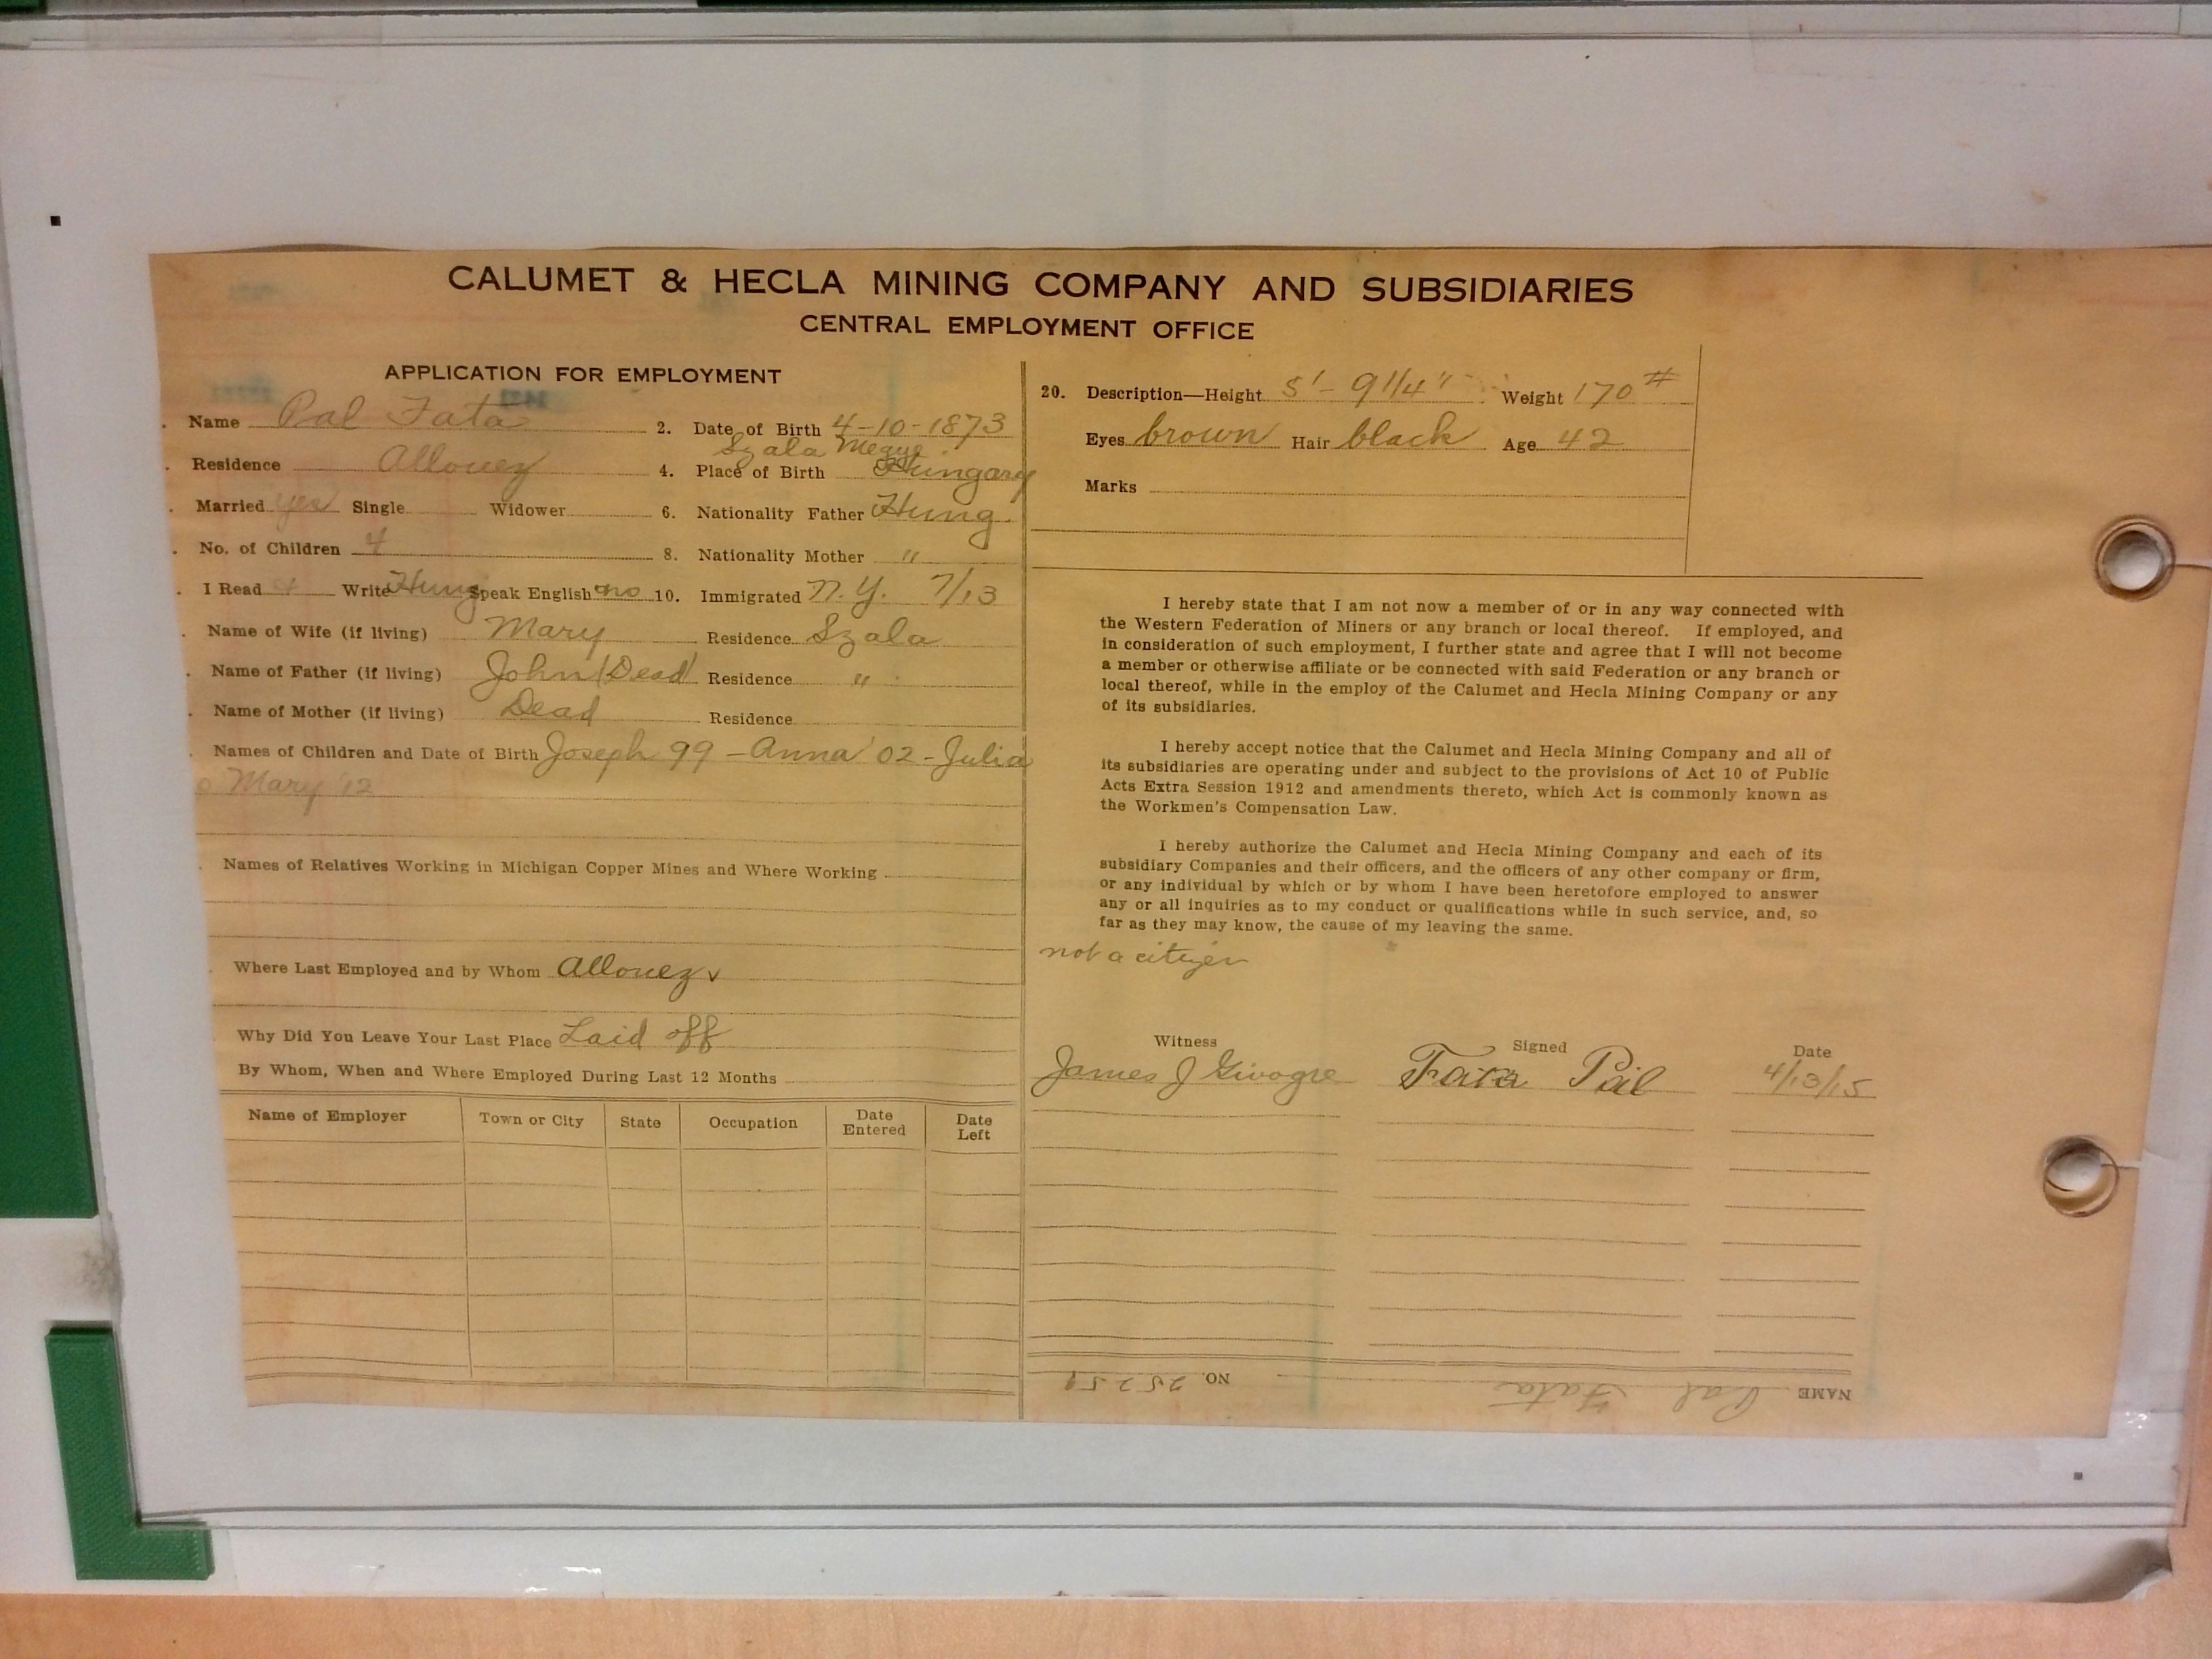 CALUMET & HECLA MINING COMPANY AND SUBSIDIARIES
CENTRAL EMPLOYMENT OFFICE
APPLICATION FOR EMPLOYMENT
Name Pal Fata 2. Date of Birth 4-10-1873
Szala Megye
Residence Allouez 4. Place of Birth Hungary
Married yes Single Widower 6. Nationality Father Hung.
No. of Children 4 8. Nationality Mother "
I Read + Write Hung Speak English no 10. Immigrated N.Y. 7/13
Name of Wife (if living) Mary Residence Szala
Name of Father (if living) John (Dead) Residence "
Name of Mother (if living) Dead Residence
Names of Children and Date of Birth Joseph 99 - Anna '02 - Julia
Mary '12
Names of Relatives Working in Michigan Copper Mines and Where Working
Where Last Employed and by Whom Allouez v
Why Did You Leave Your Last Place Laid off
By Whom, When and Where Employed During Last 12 Months
Name of Employer Town or City State Occupation Date Entered Date Left
20. Description—Height 5'-9 1/4" Weight 170#
Eyes brown Hair black Age 42
Marks
I hereby state that I am not now a member of or in any way connected with
the Western Federation of Miners or any branch or local thereof. If employed, and
in consideration of such employment, I further state and agree that I will not become
a member or otherwise affiliate or be connected with said Federation or any branch or
local thereof, while in the employ of the Calumet and Hecla Mining Company or any
of its subsidiaries.
I hereby accept notice that the Calumet and Hecla Mining Company and all of
its subsidiaries are operating under and subject to the provisions of Act 10 of Public
Acts Extra Session 1912 and amendments thereto, which Act is commonly known as
the Workmen's Compensation Law.
I hereby authorize the Calumet and Hecla Mining Company and each of its
subsidiary Companies and their officers, and the officers of any other company or firm,
or any individual by which or by whom I have been heretofore employed to answer
any or all inquiries as to my conduct or qualifications while in such service, and, so
far as they may know, the cause of my leaving the same.
not a citizen
Witness Signed Date
James J 4/13/15
NAME Pal Fata NO. 25251